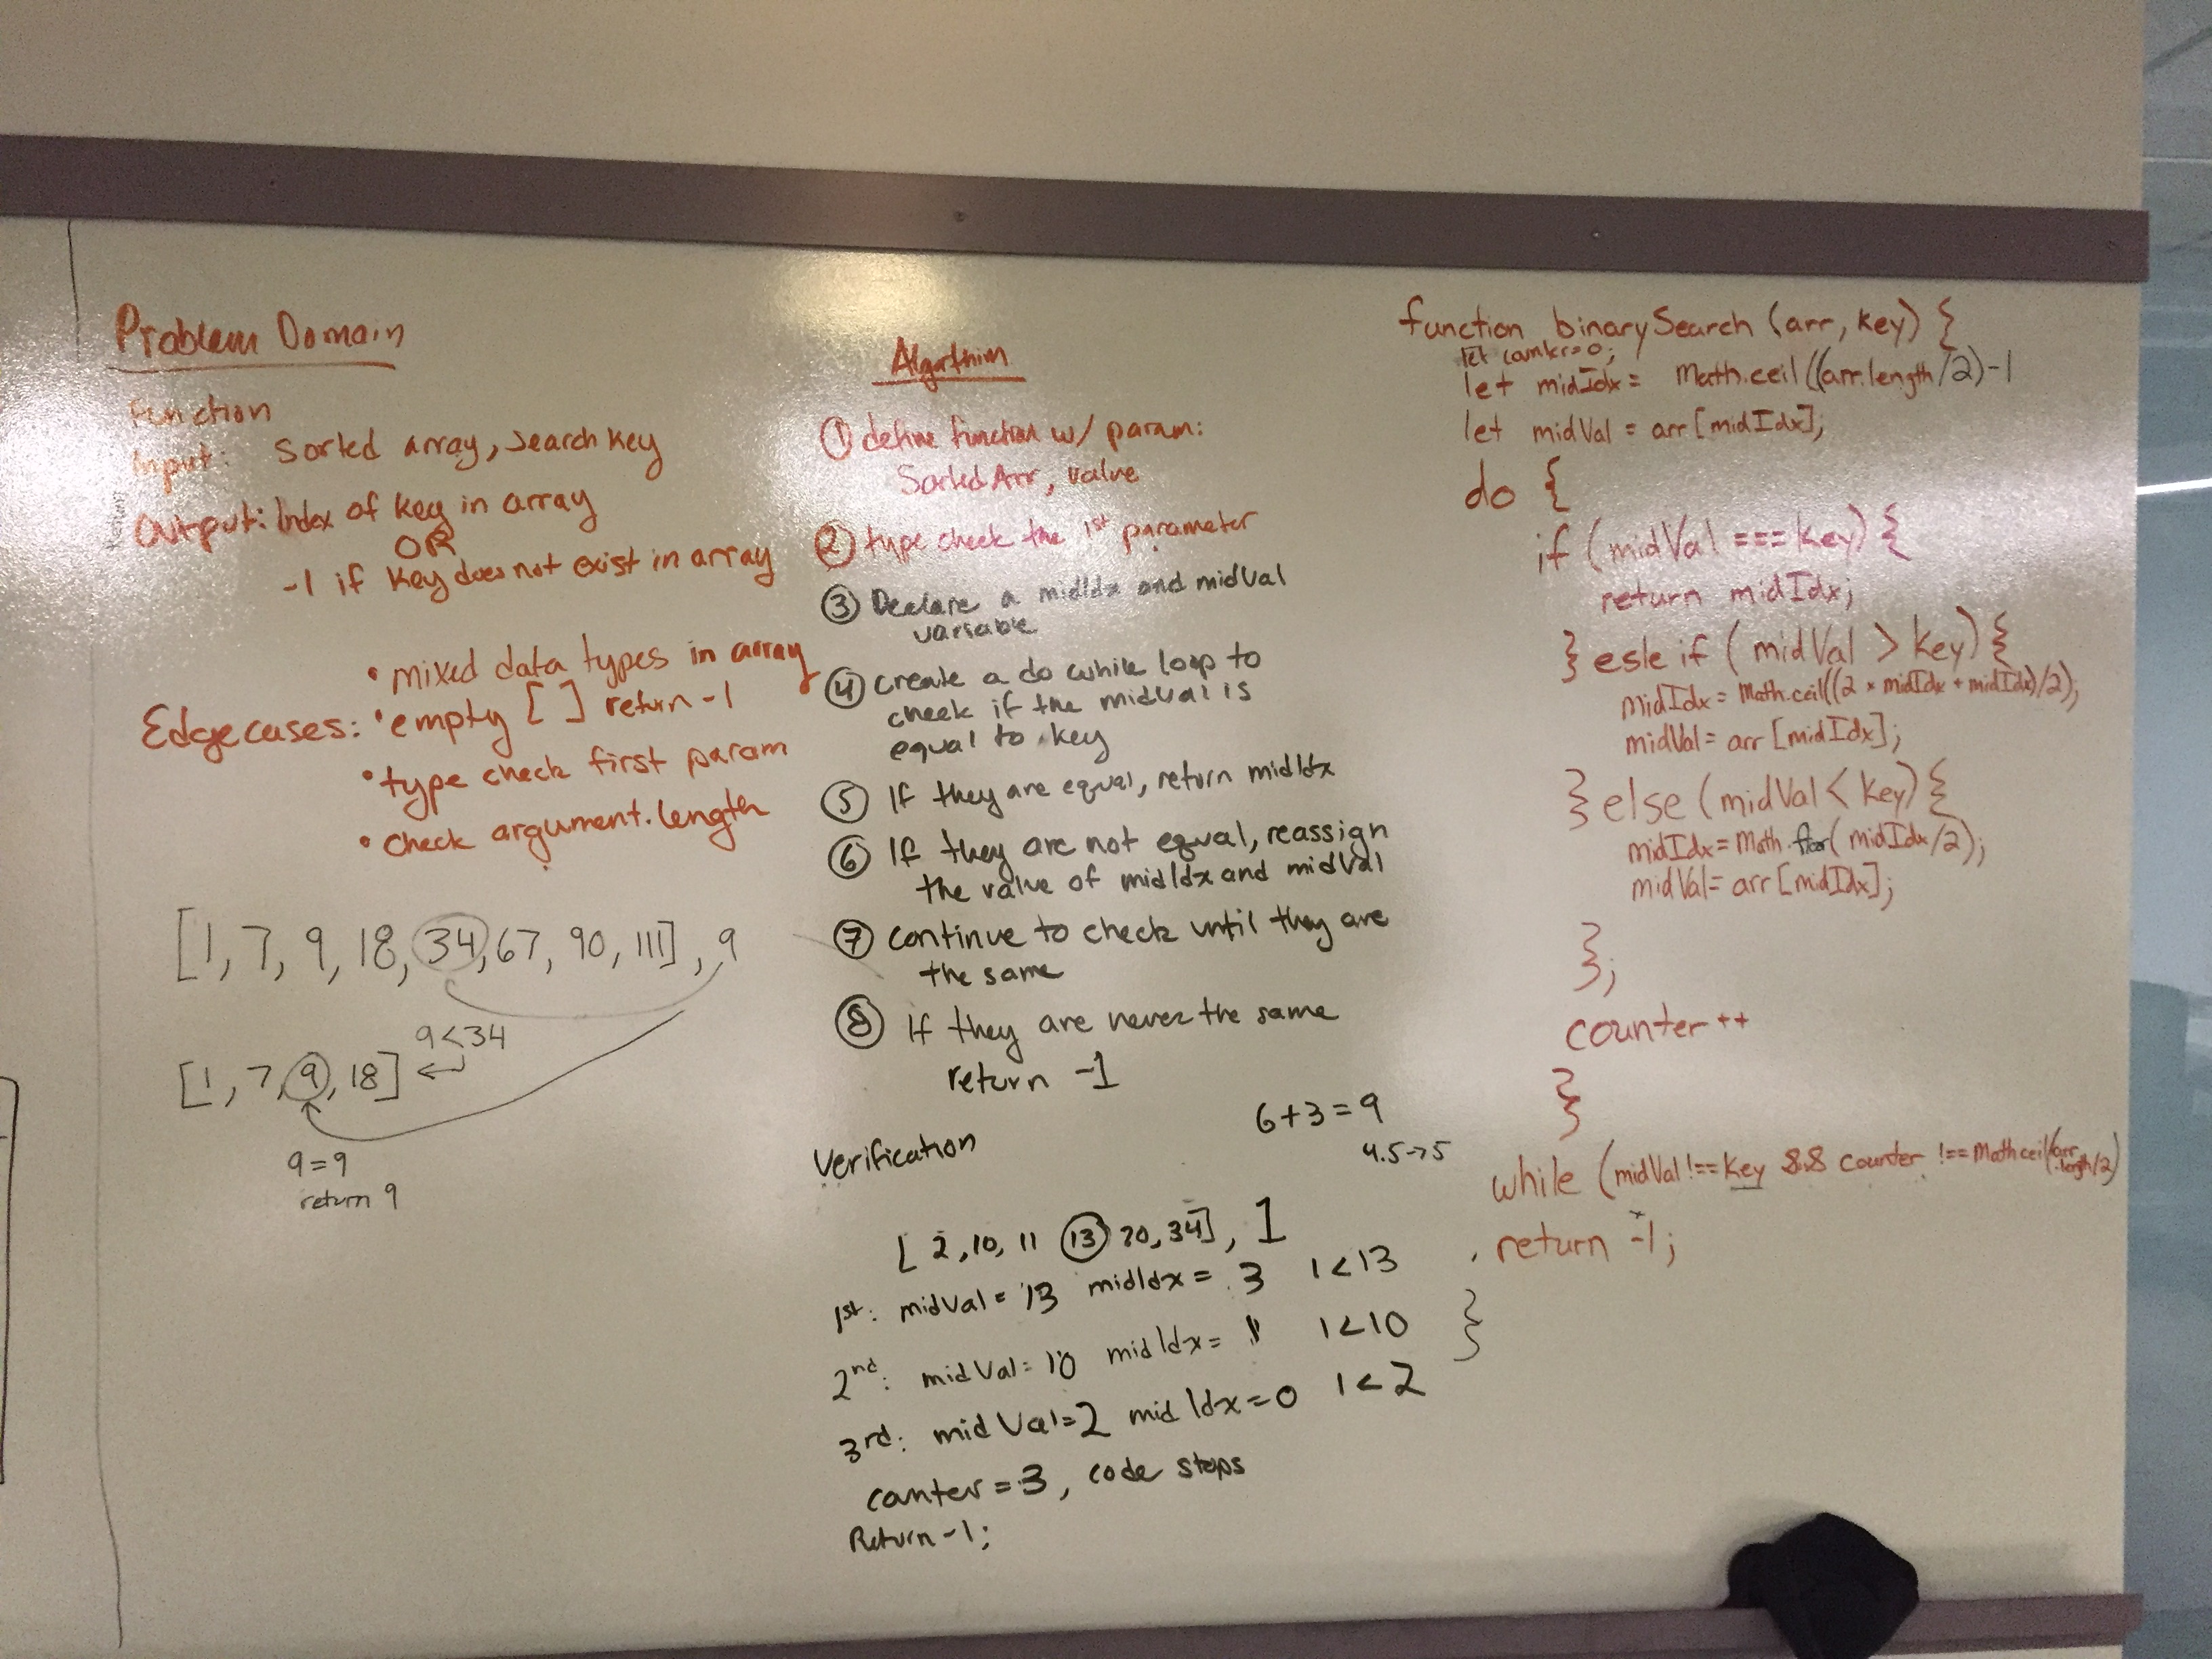 Problem Domain
Function
Input: Sorted array, Search Key
Output: Index of key in array
OR
-1 if key does not exist in array
Edgecases:
• mixed data types in array
• empty [ ] return -1
• type check first param
• check argument.length
[1, 7, 9, 18, 34, 67, 90, 111], 9
9<34
[1, 7, 9, 18]
9=9
return 9
Algorthim
① define function w/ param:
Sorted Arr, value
② type check the 1st parameter
③ Declare a midIdx and midVal
variable
④ create a do while loop to
check if the midval is
equal to key
⑤ If they are equal, return midIdx
⑥ If they are not equal, reassign
the value of midIdx and midVal
⑦ continue to check until they are
the same
⑧ If they are never the same
return -1
6+3=9
4.5→5
Verification
[2, 10, 11 13 20, 34], 1
1st: midVal = 13 midIdx = 3 1<13
2nd: midVal = 10 midIdx = 1 1<10
3rd: midVal=2 midIdx=0 1<2
counter = 3, code stops
Return -1;
function binarySearch (arr, key) {
let counter=0;
let midIdx = Math.ceil((arr.length/2)-1
let midVal = arr[midIdx];
do {
if (midVal === key) {
return midIdx;
} esle if (midVal > key) {
midIdx = Math.ceil((2 * midIdx + midIdx)/2);
midVal = arr[midIdx];
} else (midVal < key) {
midIdx = Math.floor(midIdx/2);
midVal = arr[midIdx];
};
counter++
}
while (midVal !== key && counter !== Math.ceil(arr
.length/2)
return -1;
}